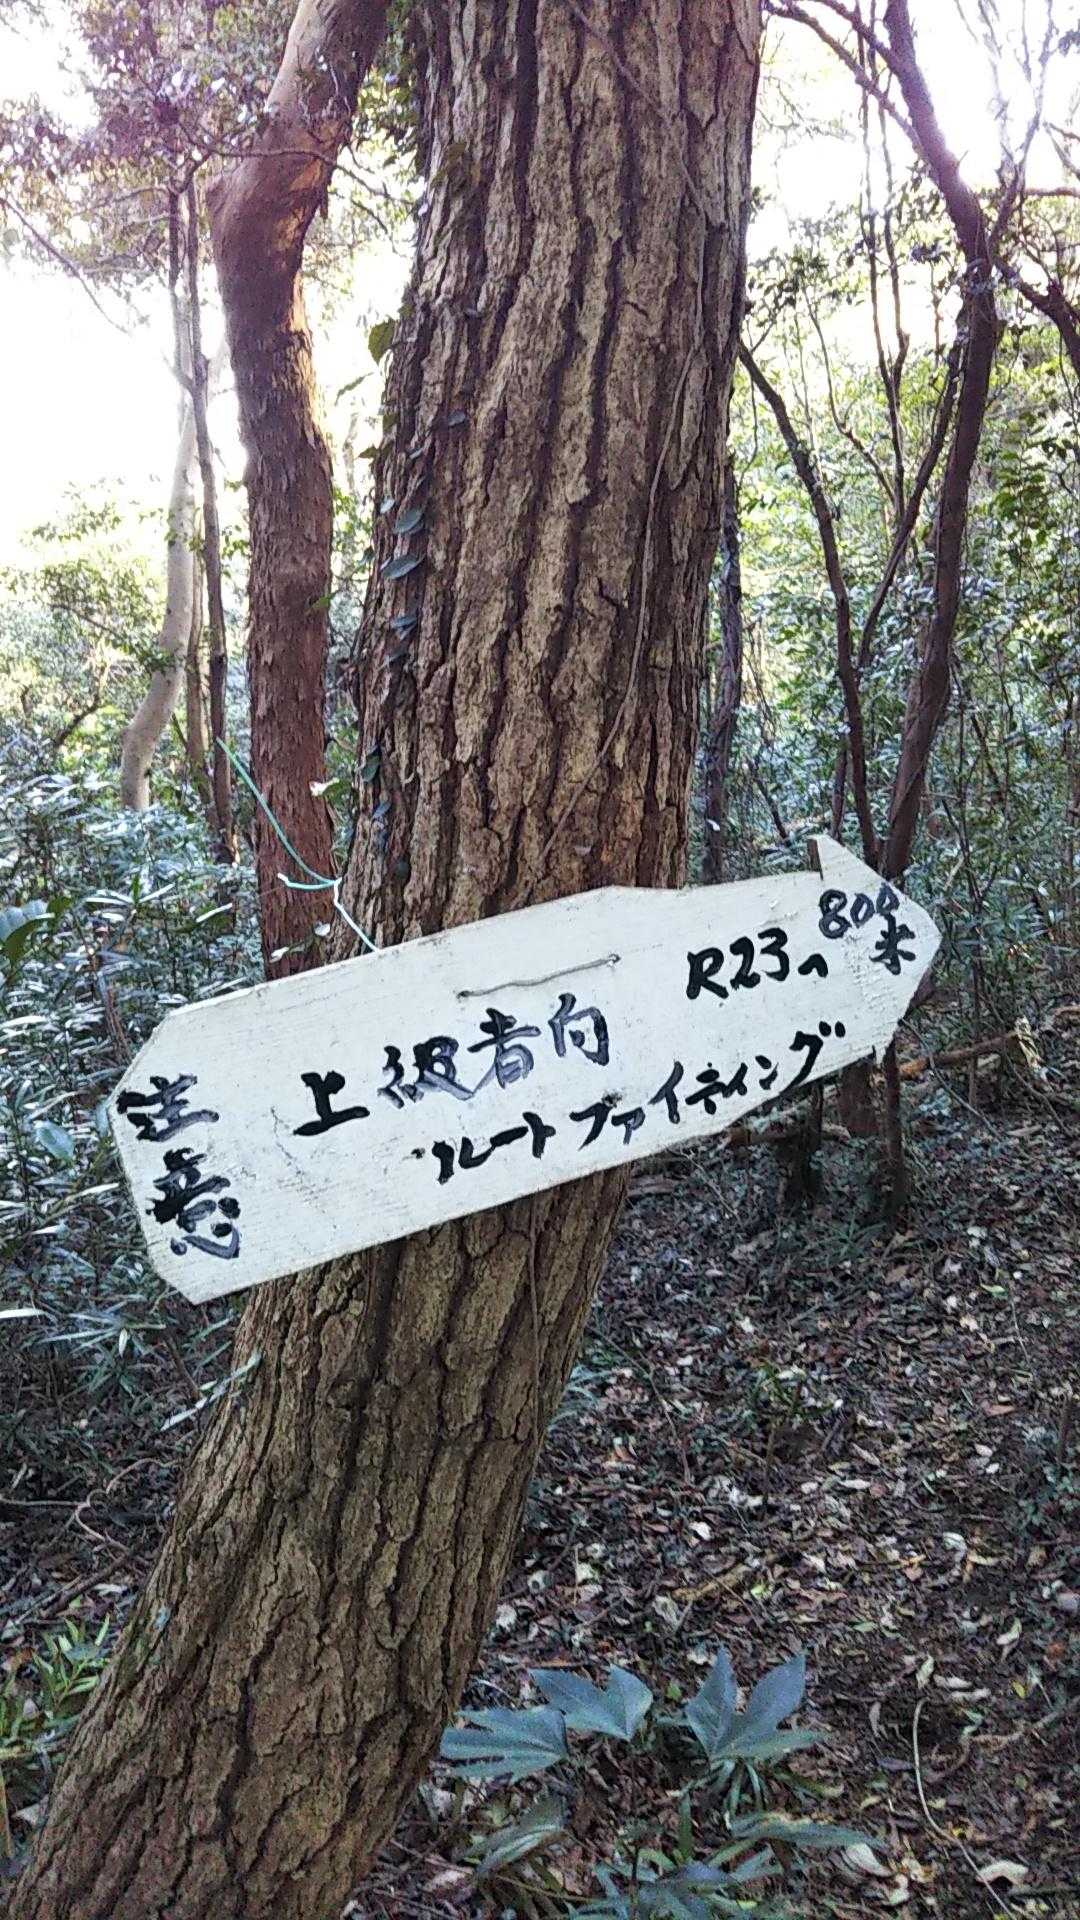 注意
上級者向
ルートファイティング
R23へ
800米